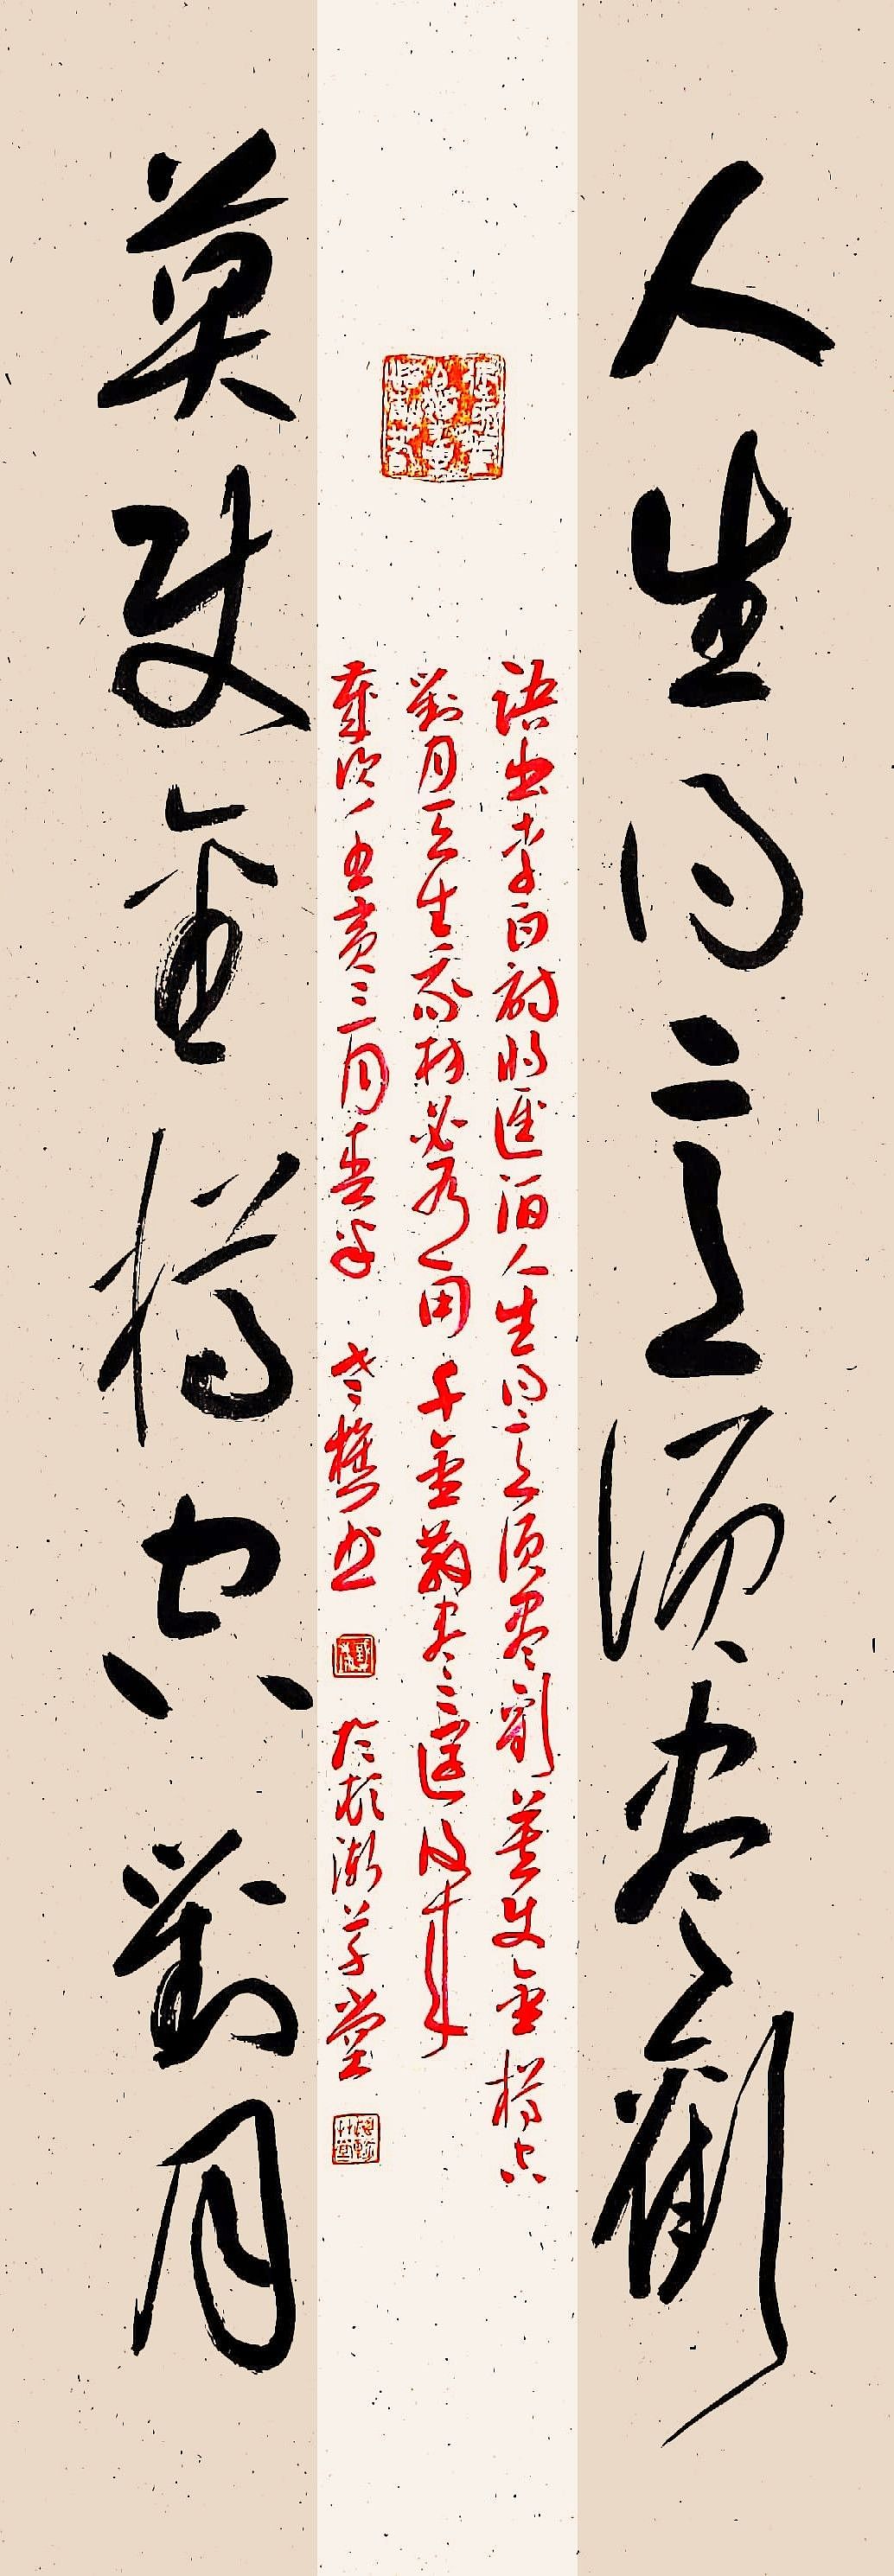 人生得意須盡歡
莫使金樽空對月
語出李白詩將進酒人生得意須盡歡莫使金樽空
對月天生我材必有用千金散盡還復來
歲次壬寅三月春半 老樵書 於草堂